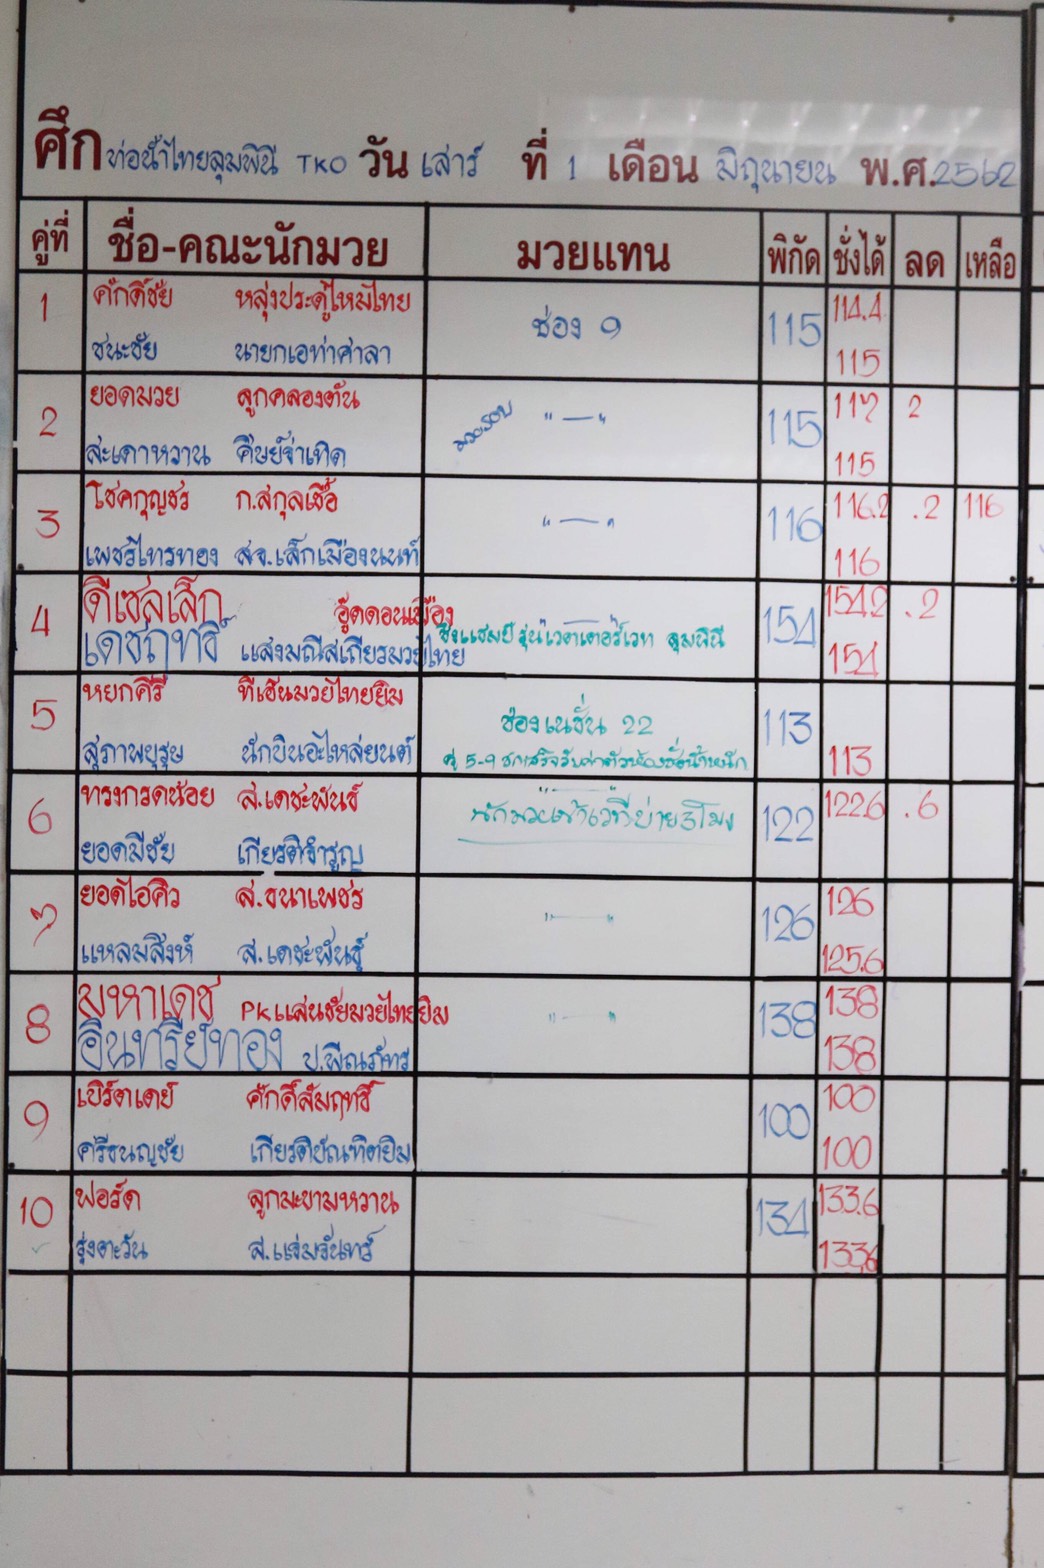 ศึก ท่อน้ำไทยลุมพินี TKO วัน เสาร์ ที่ 1 เดือน มิถุนายน พ.ศ. 2562
คู่ที่ ชื่อ-คณะนักมวย มวยแทน พิกัด ชั่งได้ ลด เหลือ
1 ศักดิ์ชัย หลุ่งประดู่ไหมไทย ช่อง 9 115 114.4
ชนะชัย นายกเอท่าศาลา 115
2 ยอดมวย ลูกคลองตัน มวยรอบ "—" 115 117 2
สะเดาหวาน ศิษย์จ่าเทิด 115
3 โชคกุญชร ก.สกุลเชื้อ "—" 116 116.2 .2 116
เพชรไทรทอง สจ.เล็กเมืองนนท์ 116
4 ดีเซลเล็ก อู๊ดดอนเมือง ชิงแชมป์ รุ่นเวลเตอร์เวท ลุมพินี 154 154.2 .2
เดชฤทธิ์ แสงมณีสเถียรมวยไทย 154
5 หยกคีรี ทีเอ็นมวยไทยยิม ช่องเนชั่น 22 113
สุภาพบุรุษ นักบินอะไหล่ยนต์ คู่ 5-9 ชกเสร็จรับค่าตัวห้องชั่งน้ำหนัก 113
6 ทรงกรดน้อย ส.เดชะพันธ์ นักมวยเข้าเวทีบ่าย 3 โมง 122 122.6 .6
ยอดมีชัย เกียรติจำรูญ
7 ยอดไอคิว ส.ธนาเพชร "—" 126 126
แหลมสิงห์ ส.เดชะพันธุ์ 125.6
8 มหาเดช PKแสนชัยมวยไทยยิม "—" 138 138
อินทรีย์ทอง ป.พีณภัทร 138
9 เบิร์ดเดย์ ศักดิ์สัมฤทธิ์ 100 100
ศรีธนญชัย เกียรติบัณฑิตยิม 100
10 ฟอร์ด ลูกมะขามหวาน 134 133.6
รุ่งตะวัน ส.แสมจันทร์ 133.6